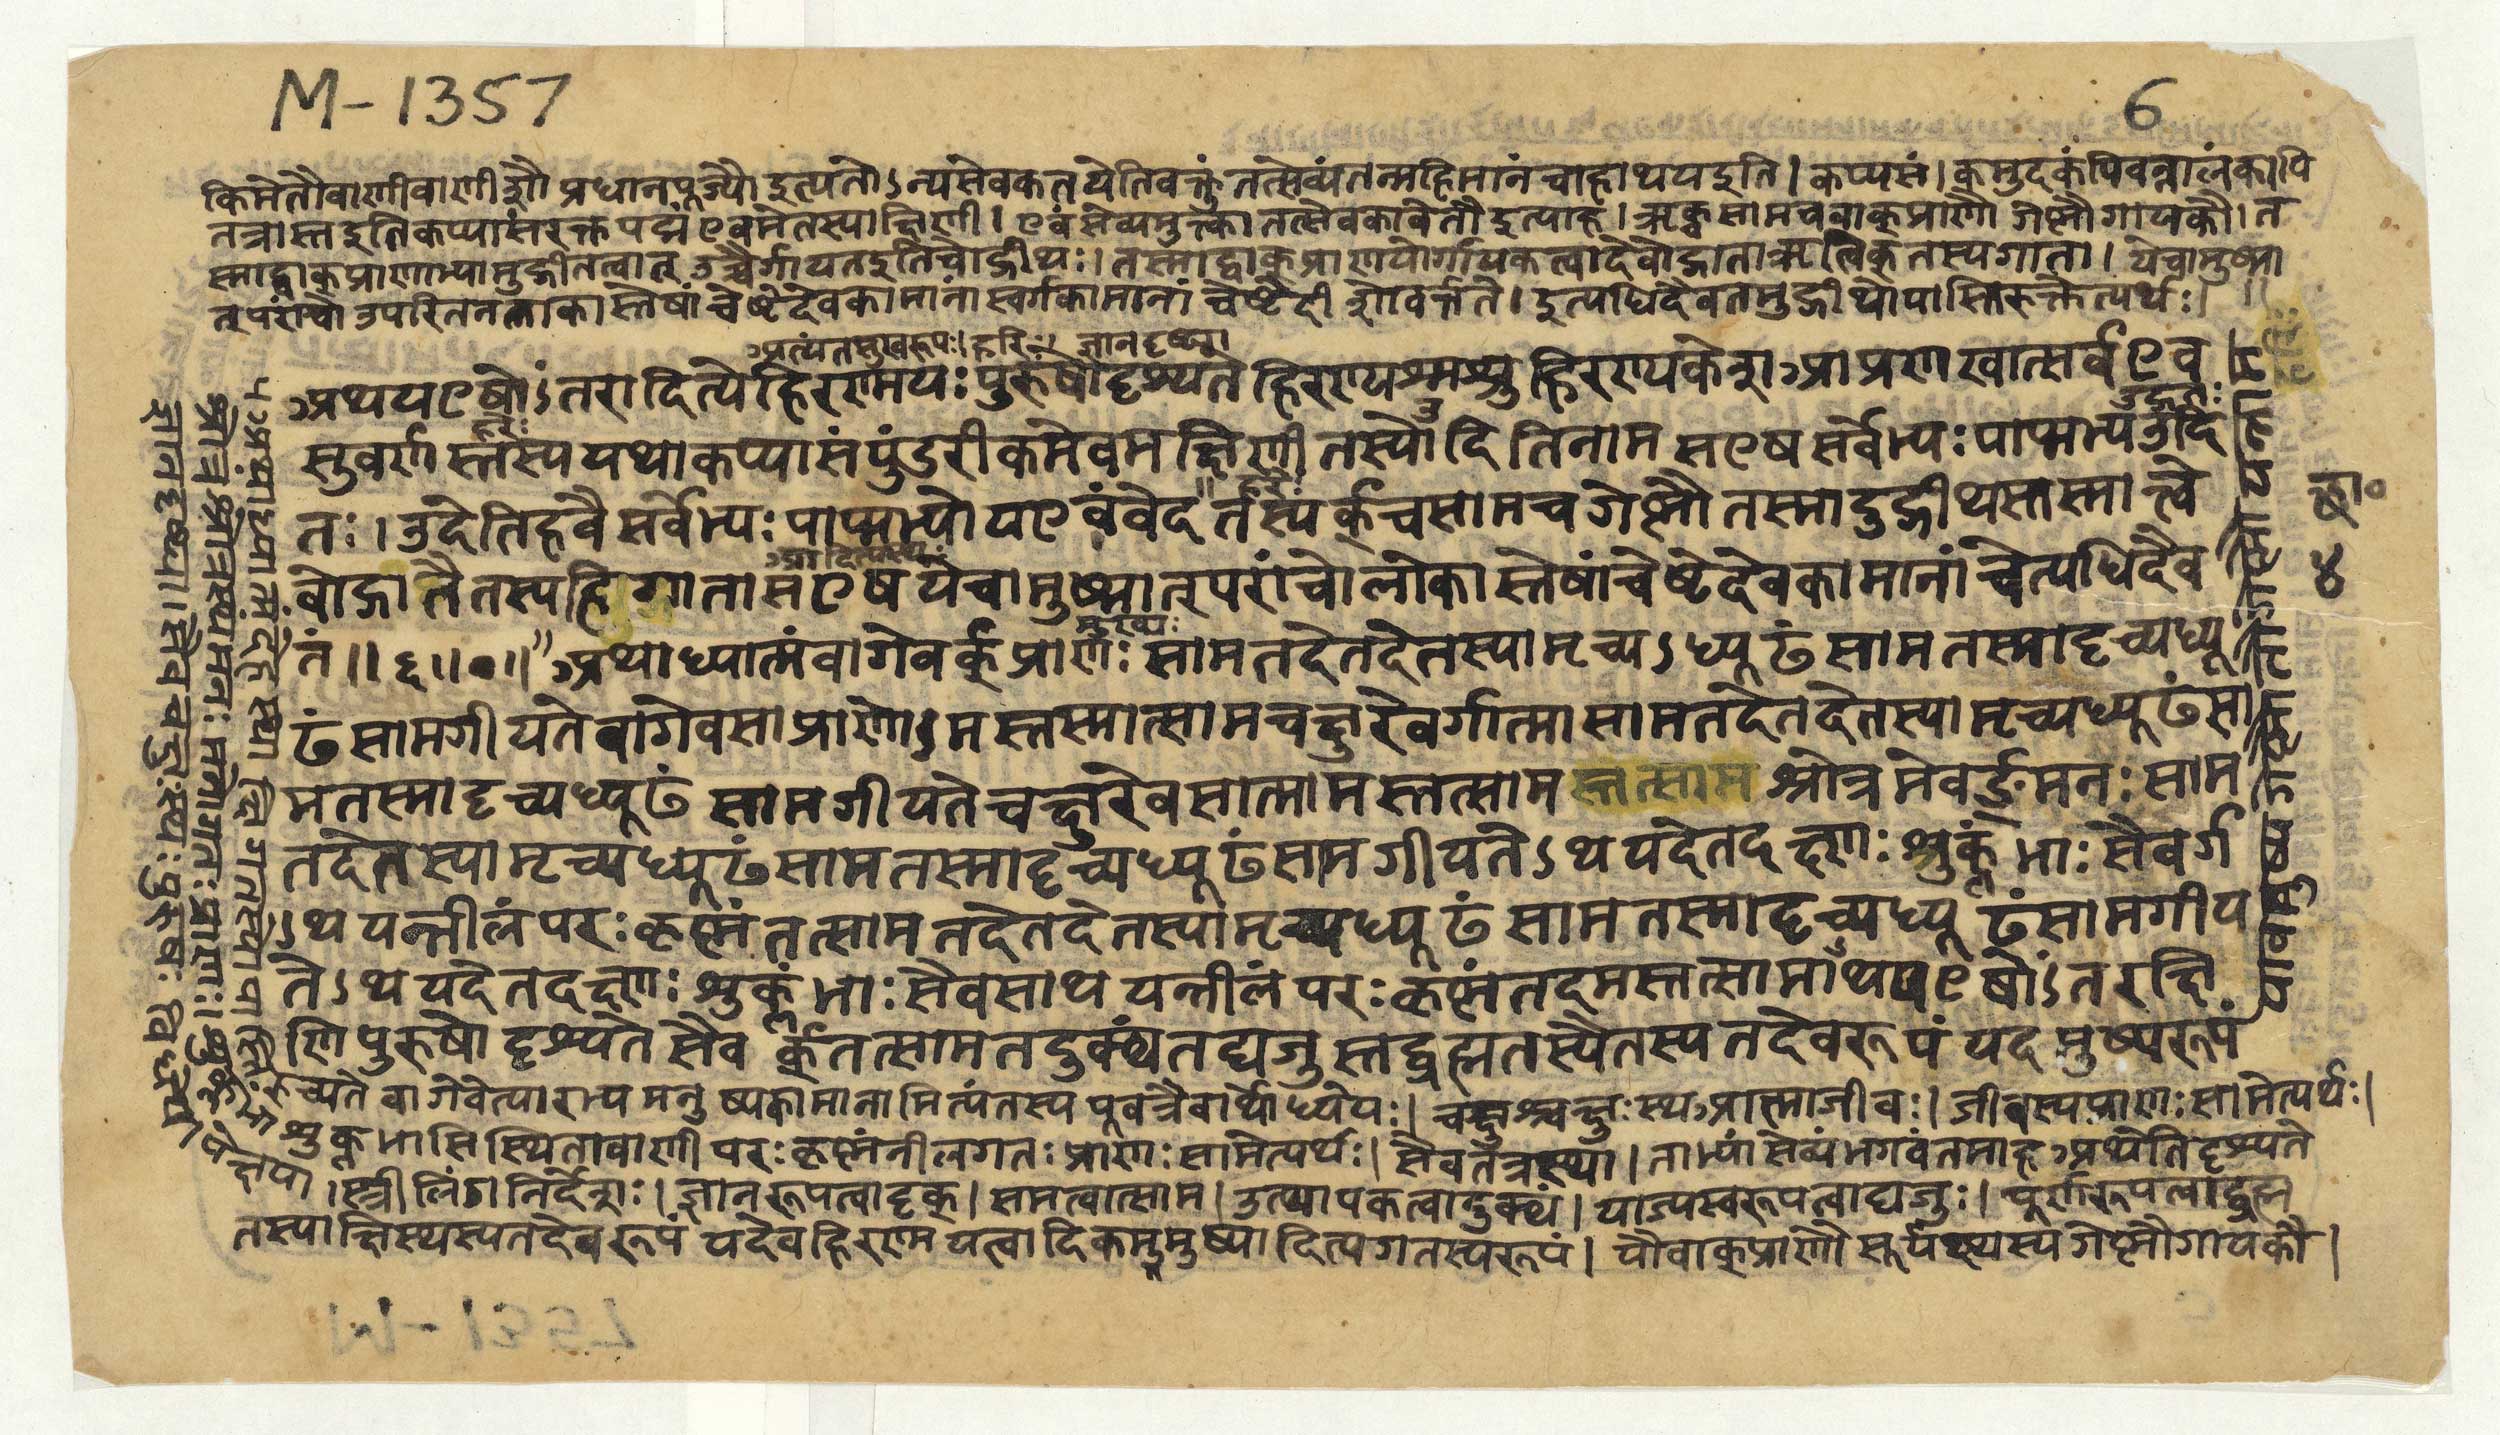 M-1357
6
किमेतौवाणीवाणीशौ प्रधानपूज्यौ इत्यतोऽन्यसेवकतयेतिवक्तुं तत्सेव्यंतन्महिमानंचाहाथयइति। कप्यसं। कमुदकंपिबन्नालंकपि
तत्रास्तइतिकप्यासंरक्तपद्मं एवमेतस्याक्षिणी। एवंसेव्यमुक्त्वा तत्सेवकावेतौ इत्याह। ऋक्चसामचवाक्प्राणौ गेष्णौगायकौ। त
स्माद्वाक्प्राणाभ्यामुद्गीतत्वात् उच्चैर्गीयतइतिचोद्गीथः। तस्माद्वाक्प्राणयोर्गायकत्वादेवोद्गाताऋत्विक्तस्यगाता। येचामुष्मा
त्परांचो उपरितनलोकास्तेषां चेष्टेदेवकामानां स्वर्गकामानां चेष्टेहीशोवर्त्तते। इत्यधिदैवतमुद्गीथोपास्तिरुक्तेत्यर्थः।
अत्यंतसुखरूपः। हरिः ज्ञानदृष्ट्या
अथयएषोंऽतरादित्येहिरण्मयः पुरुषोदृश्यते हिरण्यश्मश्रुर्हिरण्यकेश आप्रणखात्सर्वएव
सुवर्णस्तस्ययथाकप्यासंपुंडरीकमेवमक्षिणी तस्योदितिनाम सएष सर्वेभ्यः पाप्मभ्यउदि
तः। उदेतिहवै सर्वेभ्यः पाप्मभ्योयएवंवेद तस्यर्क्चसामचगेष्णौ तस्मादुद्गीथस्तस्मात्त्वे
आदित्यस्थः
वोद्गातैतस्यहिगातासएष येचामुष्मात्परांचोलोकास्तेषांचेष्टेदेवकामानां चेत्यधिदैव
मुख्यः
तं॥ ६॥०॥ अथाध्यात्मंवागेवर्क्प्राणः सामतदेतदेतस्यामृच्यऽध्यूढंसामतस्मादृच्यध्यू
ढंसामगीयते वागेवसाप्राणोऽमस्तस्मात्सामचक्षुरेवर्गात्मासामतदेतदेतस्यामृच्यध्यूढंसा
मतस्मादृच्यध्यूढं सामगीयतेचक्षुरेवसात्मामस्तत्साम स्तत्साम श्रोत्रमेवर्ङ्मनः साम
तदेतस्यामृच्यध्यूढंसामतस्मादृच्यध्यूढंसामगीयतेऽथयदेतदक्ष्णः शुक्लंभाः सैवर्ग
ऽथयन्नीलंपरः कृष्णंतत्सामतदेतदेतस्यामृच्यध्यूढंसामतस्मादृच्यध्यूढंसामगीय
तेऽथयदेतदक्ष्णः शुक्लंभाः सैवसाथयन्नीलंपरः कृष्णंतदमस्तत्सामाथयएषोंऽतरक्षि
णिपुरुषोदृश्यते सैवर्क्तत्सामतदुक्थंतद्यजुस्तद्ब्रह्मतस्यैतस्यतदेवरूपंयदमुष्यरूपं
रुच्यते वागेवेत्यारभ्यमनुष्यकामानामित्यंतस्यपूर्वत्रैवार्थोध्येयः। चक्षुश्चक्षुःस्थआत्माजीवः। जीवस्यप्राणः सामेत्यर्थः।
शुक्लभासिस्थितावाणी परः कृष्णंनीलगतः प्राणः सामेत्यर्थः। सैवतत्रस्था। ताभ्यांसेव्यंभगवंतमाहअथेतिदृश्यते
क्षेपा। स्त्रीलिंगनिर्देशः। ज्ञानरूपत्वादृक्। समत्वात्साम। उत्थापकत्वादुक्थं। याज्यस्वरूपत्वाद्यजुः। पूर्णरूपत्वाद्ब्रह्म
तस्याक्षिस्थस्यतदेवरूपं यदेवहिरण्मयत्वादिकममुष्यादित्यगतस्यरूपं। यौवाक्प्राणौसूर्यस्थस्यगेष्णौगायकौ।
छा०
४
अथाध्यात्मंदेहस्था
श्रोत्रंश्रोत्रस्थंमनः मनोगतः प्राणः।
ज्ञानदृष्ट्या। सैवचक्षुःस्थः पुरुषः